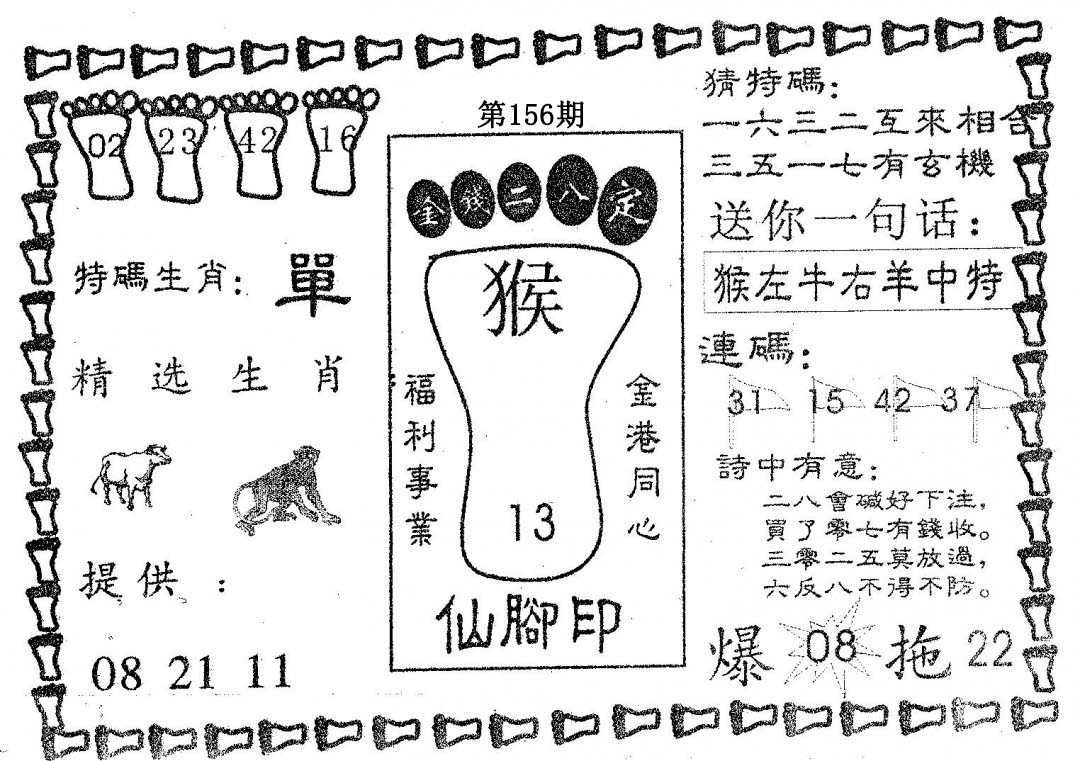 第156期
02 23 42 16
特碼生肖：單
精选生肖
提供：
08 21 11
金錢二八定
猴
13
福利事業
金港同心
仙腳印
猜特碼：
一六三二互來相合
三五一七有玄機
送你一句话：
猴左牛右羊中特
連碼：
31 15 42 37
詩中有意：
二八會碱好下注，
買了零七有錢收。
三零二五莫放過，
六反八不得不防。
爆 08 拖 22